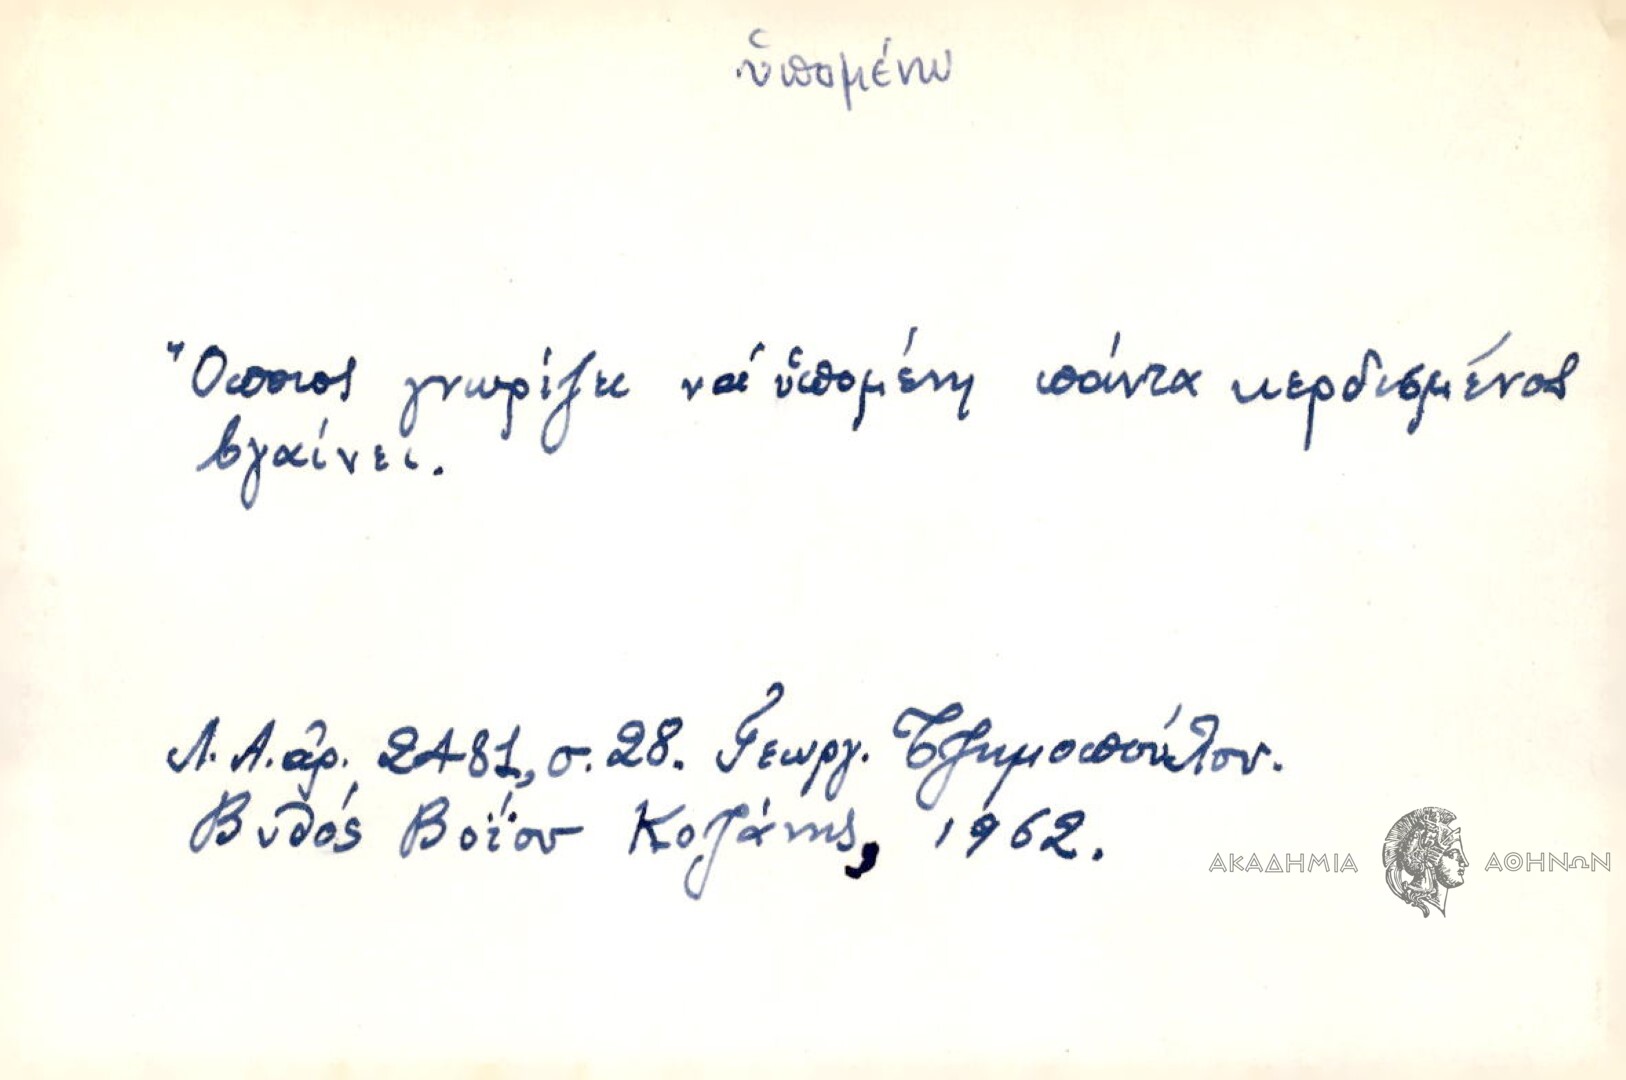 ὑπομένω
Ὅποιος γνωρίζει νά ὑπομένη πάντα κερδισμένος
βγαίνει.
Λ.Α. ἀρ. 2481, σ. 28. Γεωργ. Τζημοπούλου.
Βυθός Βοΐου Κοζάνης, 1962.
ΑΚΑΔΗΜΙΑ ΑΘΗΝΩΝ